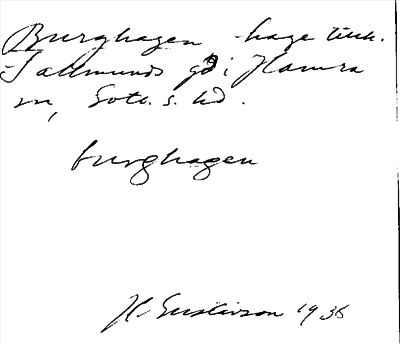 Burghagen -hage tillh.
Sallmunds gd i Hamra
sn, Gotl. s. hd.
burghagen
H. Gustavson 1936